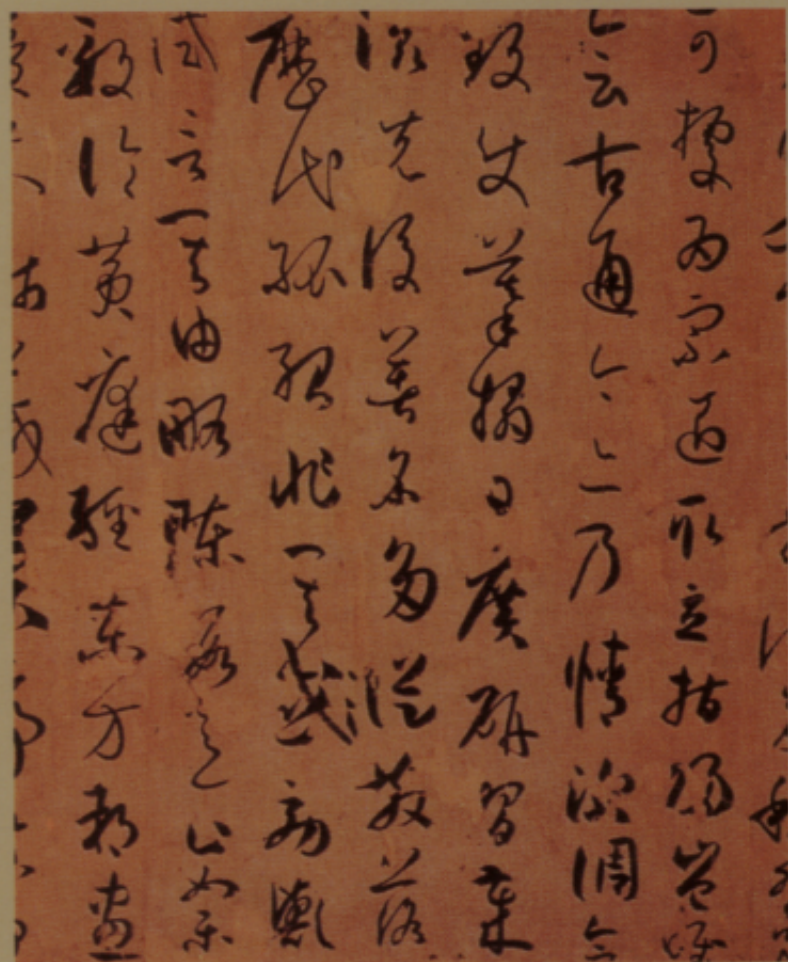 可據為宗匠取立指歸豈唯
會古通今亦乃情深調合
致使摹搨日廣研習歲
滋先後著名多從散落
歷代孤紹非其効歟
試言其由略陳數意止如樂
毅論黃庭經東方朔畫